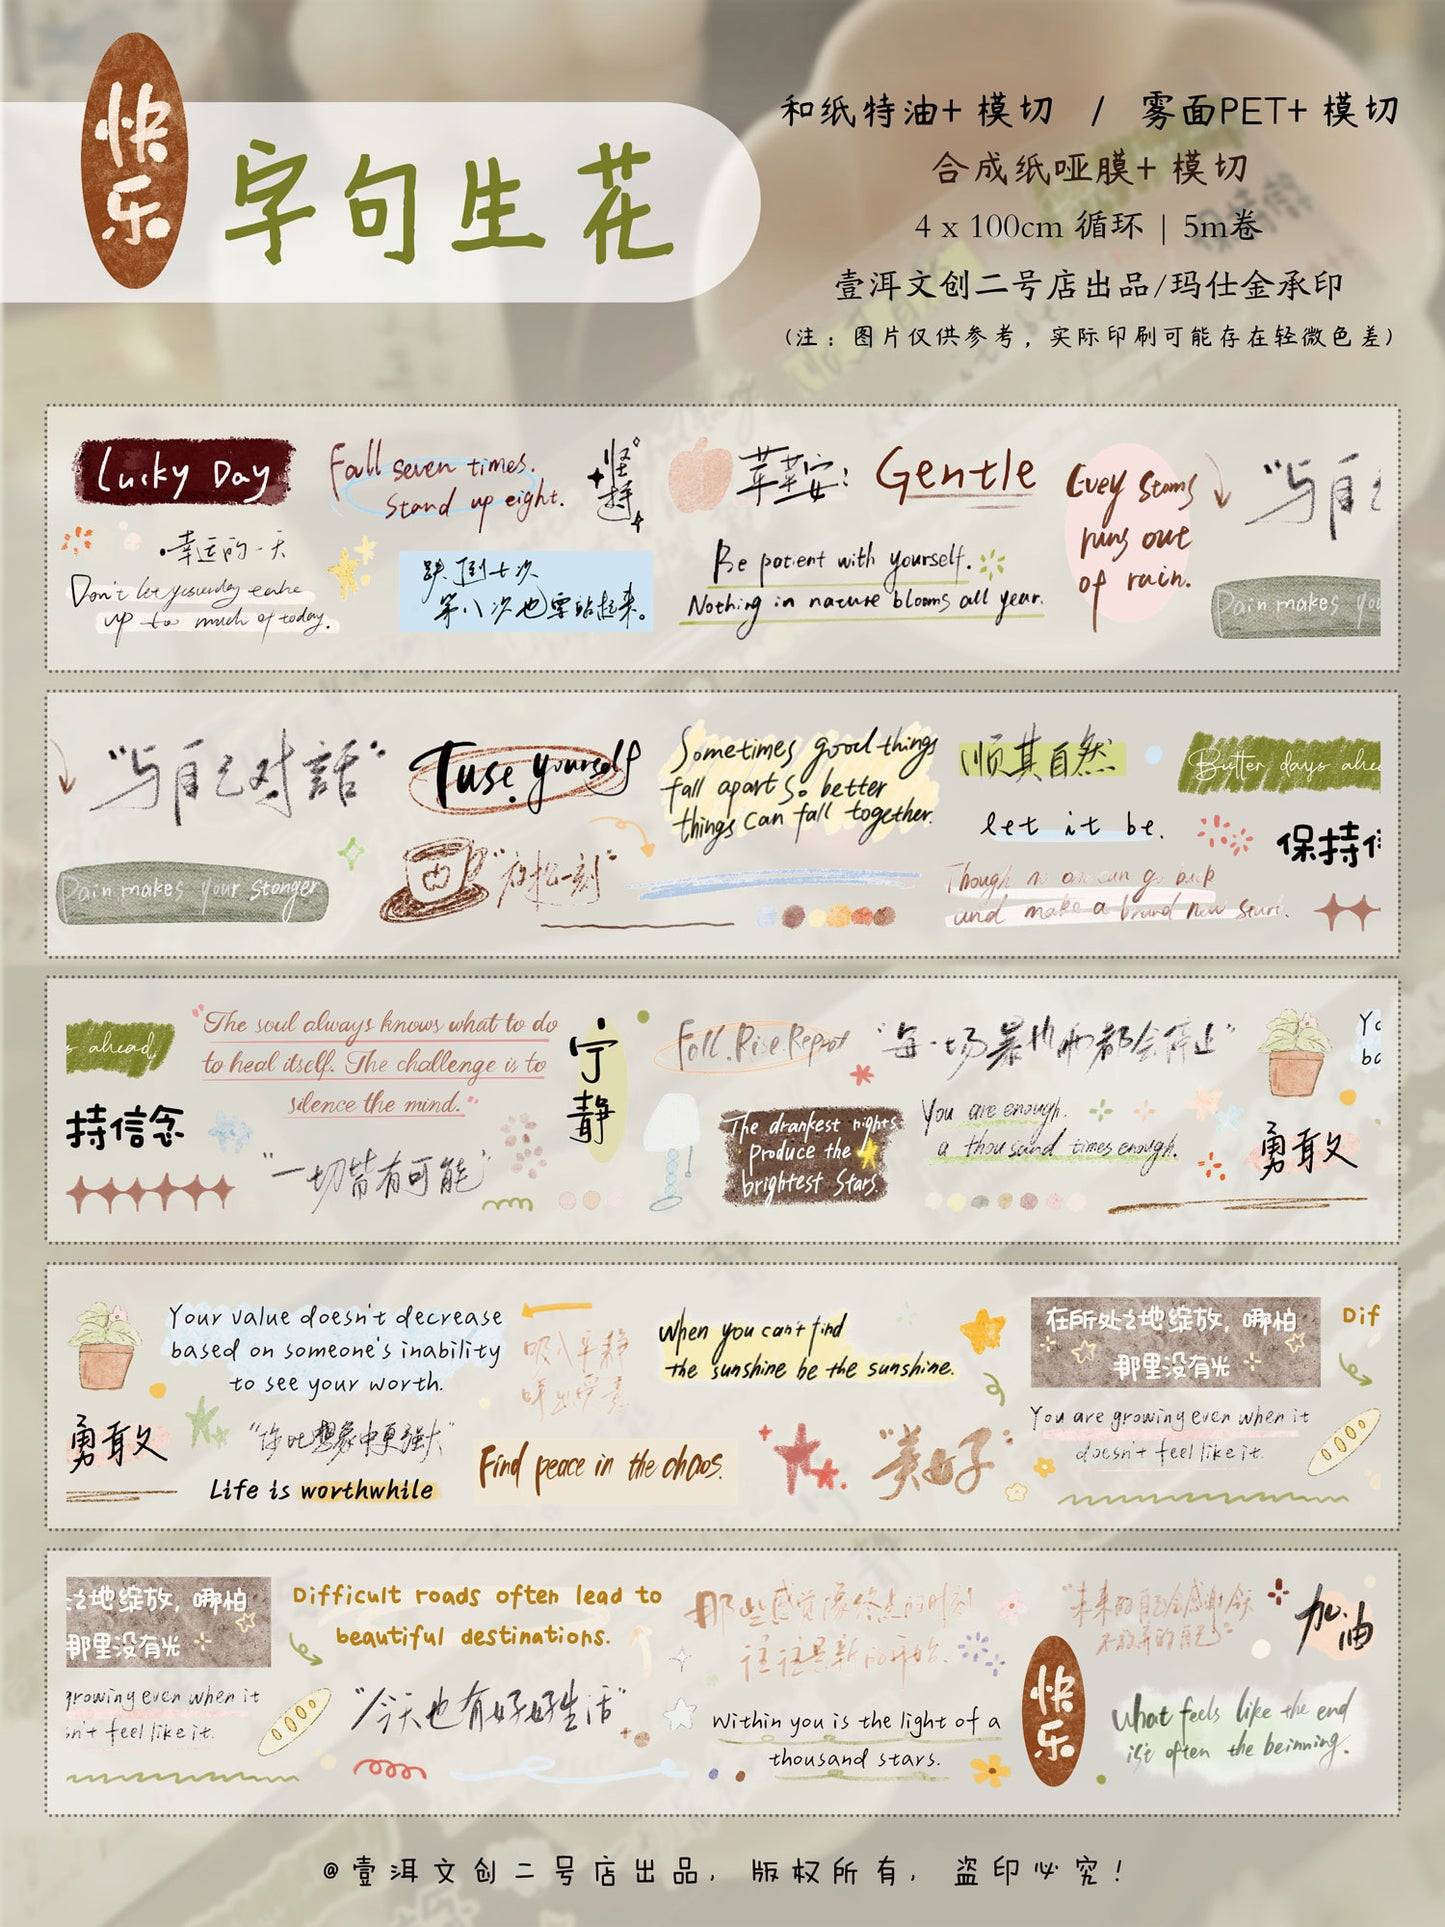 快乐
字句生花
和纸特油+ 模切 / 雾面PET+ 模切
合成纸哑膜+ 模切
4 x 100cm 循环 | 5m卷
壹洱文创二号店出品/玛仕金承印
(注：图片仅供参考，实际印刷可能存在轻微色差)
Lucky Day
幸运的一天
Don't let yesterday
up too much of today.
Fall seven times.
Stand up eight.
跌倒七次
第八次也要站起来。
坚持
苹苹安:
Gentle
Be patient with yourself.
Nothing in nature blooms all year.
Evey Stoms
runs out
of rain.
"与自己
Pain makes you
"与自己对話"
Pain makes your stonger
Tuse yourself
"放松一刻"
Sometimes good things
fall apart so better
things can fall together.
顺其自然
let it be.
Better days ahea
保持信
Though no one can go back
and make a brand new start.
s ahead,
持信念
"The soul always knows what to do
to heal itself. The challenge is to
silence the mind."
"一切皆有可能"
宁静
Fall.Rise.Repeat
The drankest nights
produce the
brightest Stars.
"每一场暴风雨都会停止"
You are enough.
a thousand times enough.
勇敢
Yo
ba
勇敢
Your value doesn't decrease
based on someone's inability
to see your worth.
"你比想象中更强大"
Life is worthwhile
吸入平静
呼出
Find peace in the chaos.
When you can't find
the sunshine be the sunshine.
"美好"
在所处之地绽放，哪怕
那里没有光
You are growing even when it
doesn't feel like it.
Dif
之地绽放，哪怕
那里没有光
growing even when it
sn't feel like it.
Difficult roads often lead to
beautiful destinations.
"今天也有好好生活"
那些感觉像终点的时刻
往往是新的开始.
Within you is the light of a
thousand stars.
快乐
"未来的自己会感谢今天
不放弃的自己"
加油
What feels like the end
is't often the beinning.
@壹洱文创二号店出品，版权所有，盗印必究!